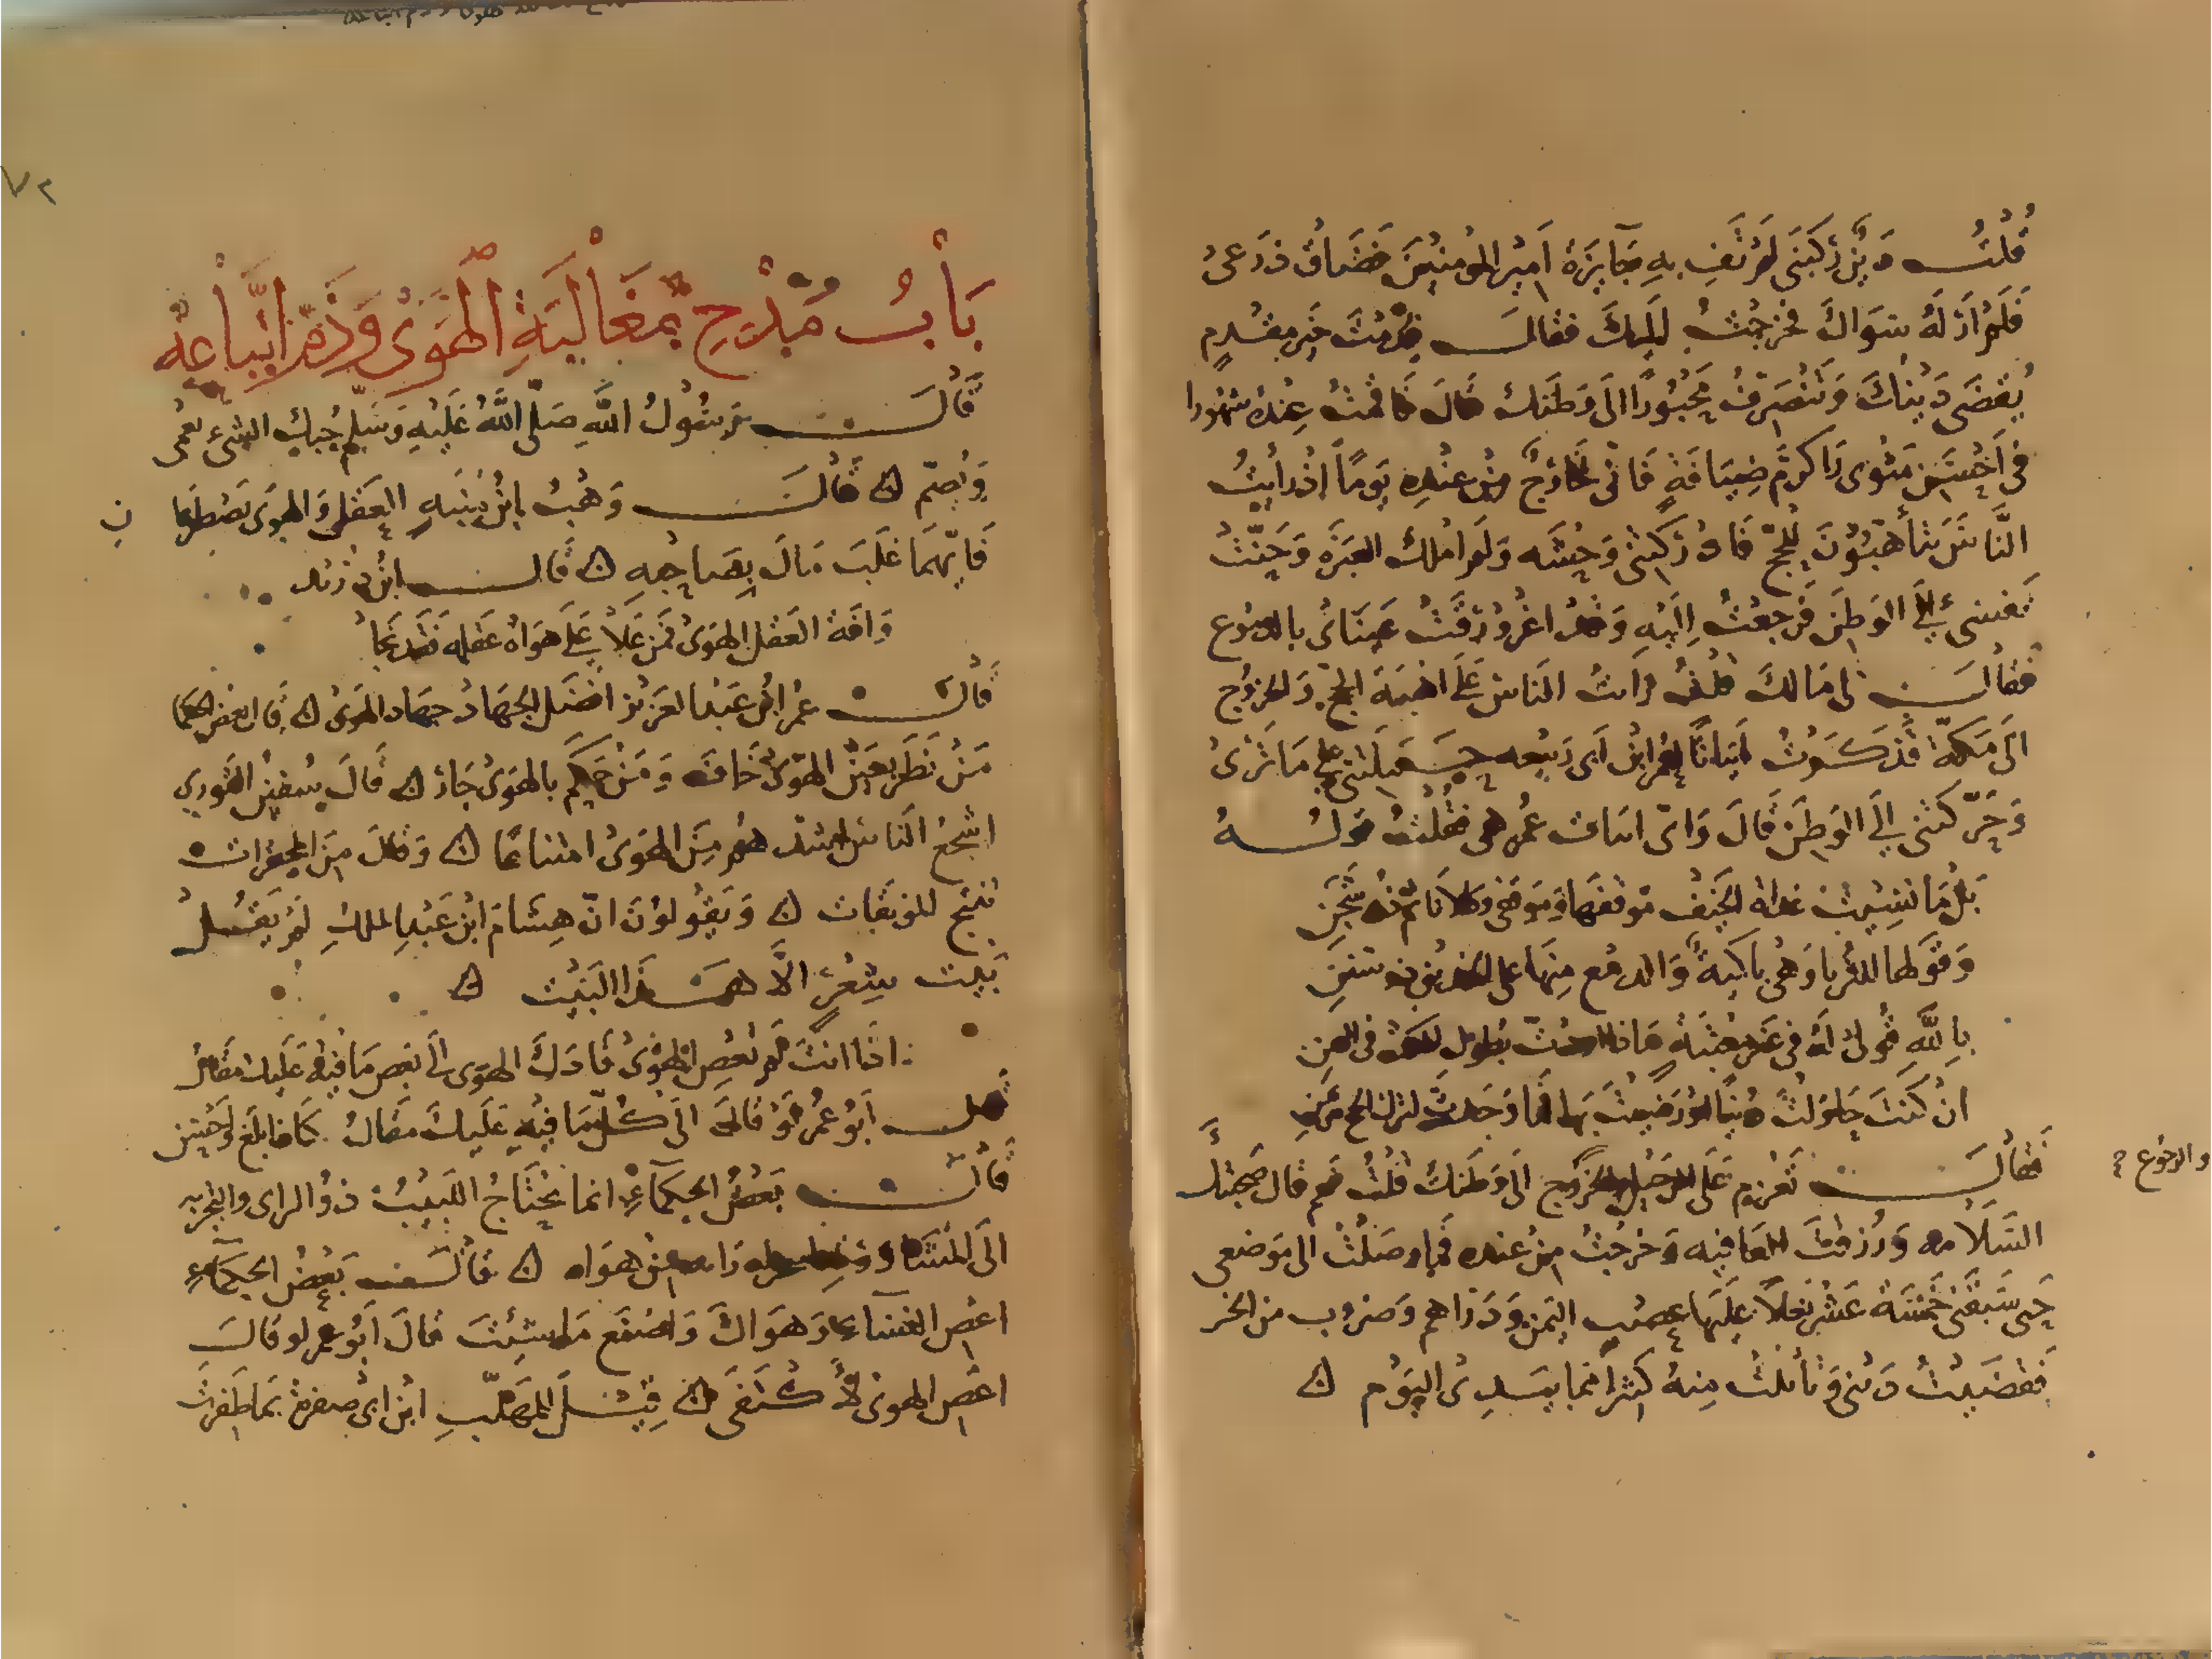 قُلتُ دَينٌ رَكبَني لَم تَفِ بهِ جَايزَة امَير المُومنينَ فَضَاق ذرَعى
فَلَم ارَ لَهُ سَوَاكَ فخرجتُ اليكَ فقالَ قدِمتَ خَير مقدمٍ
يُقضَى دَينكَ وَتنصَرفُ مَحبُورًا الَى وَطنكَ قال فاقمتُ عِندهُ شهورا
في احْسَن مَثوى واكرم ضِيَافةٍ فَانى لخارجٌ مِن عندِه يَومًا اذ رايتُ
النَّاسَ يتأهبُونَ للحجّ فَادركتنى وَحشَه وَلم املك العَبرَة وَحنّتْ
نَفسى الَى الوَطنِ فَرجعتُ اِليَهِ وَقد اغروْرَقَتْ عَينَاىَ بالدموع
فقالَ لى مَالكَ قلتُ رايتُ الناسَ عَلَى اهبَة الحج وَالخروُج
الَى مكّة فذكَرتُ ابيَاتًا لعُمر ابن ابى رَبيعه حمَلتنى على مَا تَرى
وَحَرّكتنى الَى الوَطن قَالَ وَاىّ ابيات عُمر هى فقُلتُ قولُهُ
بَل مَا نسِيتُ غداة الخَيف مَوقفهَا وَموَقفى وكلانا ثمّ ذو شَجَن
وَقولها للثريا وَهْىَ باكيةٌ وَالدمع مِنها على الخدين ذو سَنَنِ
باِللَّهِ قُولى لَهُ فى غَير مَعتبَةٍ مَاذا اردتَ بطول المكث فى اليمن
ان كنتَ حاوَلتَ دنيَا اورضيتَ بها فما وَجدتَ لترك الحج مِن ثمن
فقالَ تَعزم عَلى الرحيل والخرُوج الَى وَطنكَ قلتُ نعم قال صَحبتْكَ
والرجُوع صح
السَّلامه وَرُزقتَ العَافيه وَخرجتُ مِن عنده فما وصَلتُ الى مَوضعى
حَتى سَبقتنى خمَسَة عَشر بَغلًا عليَها عصب اليَمن وَدَراهم وَضروُب من الخز
فقضَيتُ دَينى وَتاثلتُ مِنهُ كثيرًا مما بيدى اليَوم ن
٧٢
بَابُ مَدْحِ مُغَالبَةِ الهَوَى وَذَمّ اتّبَاعِهِ
قَالَ رَسُولُ اللَّهِ صَلَّى اللَّهُ عَليهِ وَسَلم حُبكَ الشىء يُعمى
وَيُصِمّ ن قَالَ وَهبُ ابن مُنبَه العَقل وَالهوَى يَصْطرعَا
ن
فَايّهمَا غلَبَ مَالَ بِصَاحِبهِ ن قَالَ ابن دُريد
وَافَة العَقل الهَوَى فمَن عَلَا عَلى هوَاهُ عَقله فَقَد نجَا
قَالَ عُمر ابن عَبد العَزيز افضَل الجهَاد جهَاد الهَوَى ن قَال بَعض الحكما
مَن نَظَر بعَين الهَوَى خَافَ وَمَن حكم بالهوَى جَار ن قَالَ سُفين الثَّوري
اشجعُ الناس اشدّهُم مِنَ الهوَى امتناعًا ن وَقالَ مِنَ المحقرَات
تنتج الموبقَات ن وَيَقولونَ انّ هِشَام ابن عَبدِ الملكِ لم يَقُل
بَيت شِعْرٍ الّا هَذَا البَيت ن
اذَا انتَ لم تَعصِ الهَوَى قادَكَ الهوَى الَى بَعض مَا فيهِ عَليك مَقَالُ
قال اَبو عُمَر لَوْ قالَ الَى كُلّ مَا فيهِ عَلَيكَ مَقَالُ كَانَ ابلغ واحْسَن
قَالَ بَعضُ الحكمَاءِ انما يَحتَاجُ اللبَيبُ ذوُ الراى والتجربه
الَى المُشَاوَرَة ليتجرد رايه مِن هوَاه ن قَالَ بَعضُ الحكمَاءِ
اعْصِ النسَاءَ وَهوَاكَ وَاصْنَع مَا شِئتَ قَالَ اَبُو عمر لو قالَ
اعْصِ الهَوى لاكْتفَى ن قيلَ للمُهَلّبِ ابن ابى صفرة بمَا ظَفرتَ